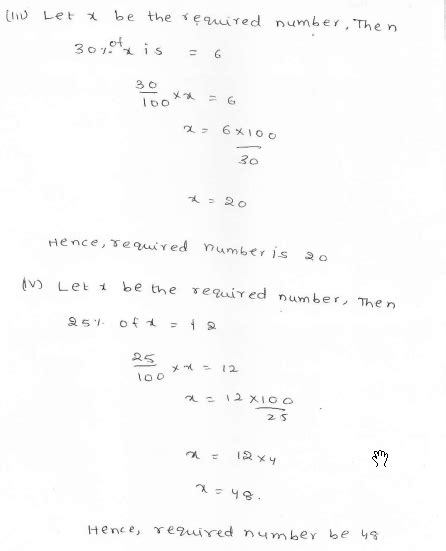 (iii) Let x be the required number, Then
30% of x is = 6
30/100 × x = 6
x = 6×100/30
x = 20
Hence, required number is 20
(iv) Let x be the required number, Then
25% of x = 12
25/100 × x = 12
x = 12×100/25
x = 12×4
x = 48.
Hence, required number be 48